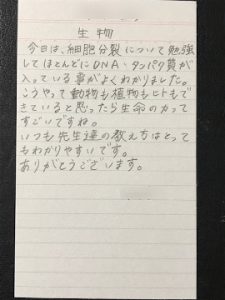 生物
今日は、細胞分裂について勉強
してほとんどにDNA・タンパク質が
入っている事がよくわかりました。
こうやって動物も植物もヒトもで
きていると思ったら生命の力って
すごいですね。
いつも先生達の教え方はとって
もわかりやすいです。
ありがとうございます。